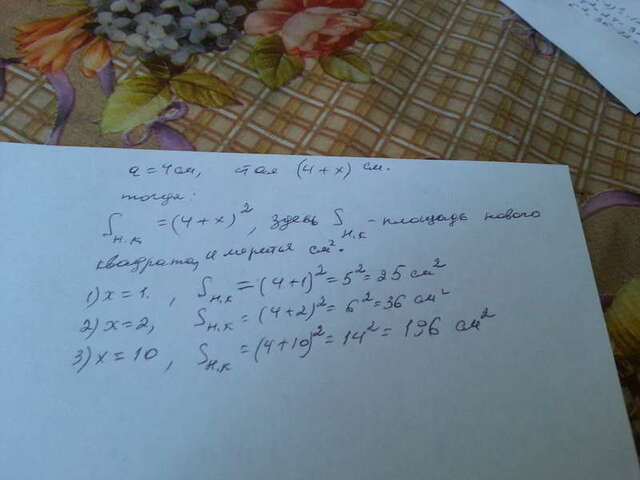 a = 4 см, стая (4 + x) см.
тогда:
S н.к = (4 + x)², здесь S н.к - площадь нового
квадрата, и мерется см².
1) x = 1. , S н.к = (4+1)² = 5² = 25 см²
2) x = 2, S н.к = (4+2)² = 6² = 36 см²
3) x = 10 , S н.к = (4+10)² = 14² = 196 см²